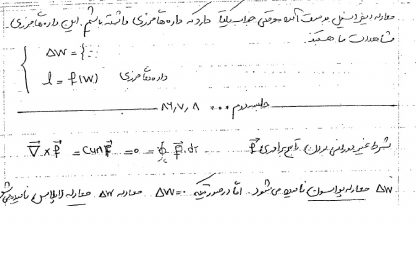 معادله دیفرانسیل بدست آمده وقتی جواب یکتا دارد که داده‌های مرزی داشته باشیم. این داده‌های مرزی
مشاهدات ما هستند.
ΔW = {:
l = f(W) داده‌های مرزی
جلسه دوم ... ۸۶,۷,۸
شرط غیر دورانی بودن تابع برداری F⃗
∇⃗ × F⃗ = Curl F⃗ = 0 = ∮ F⃗.dr
ΔW معادله پواسون نامیده می‌شود. اما در صورتیکه ΔW=0 معادله ΔW معادله لاپلاس نامیده می‌شو